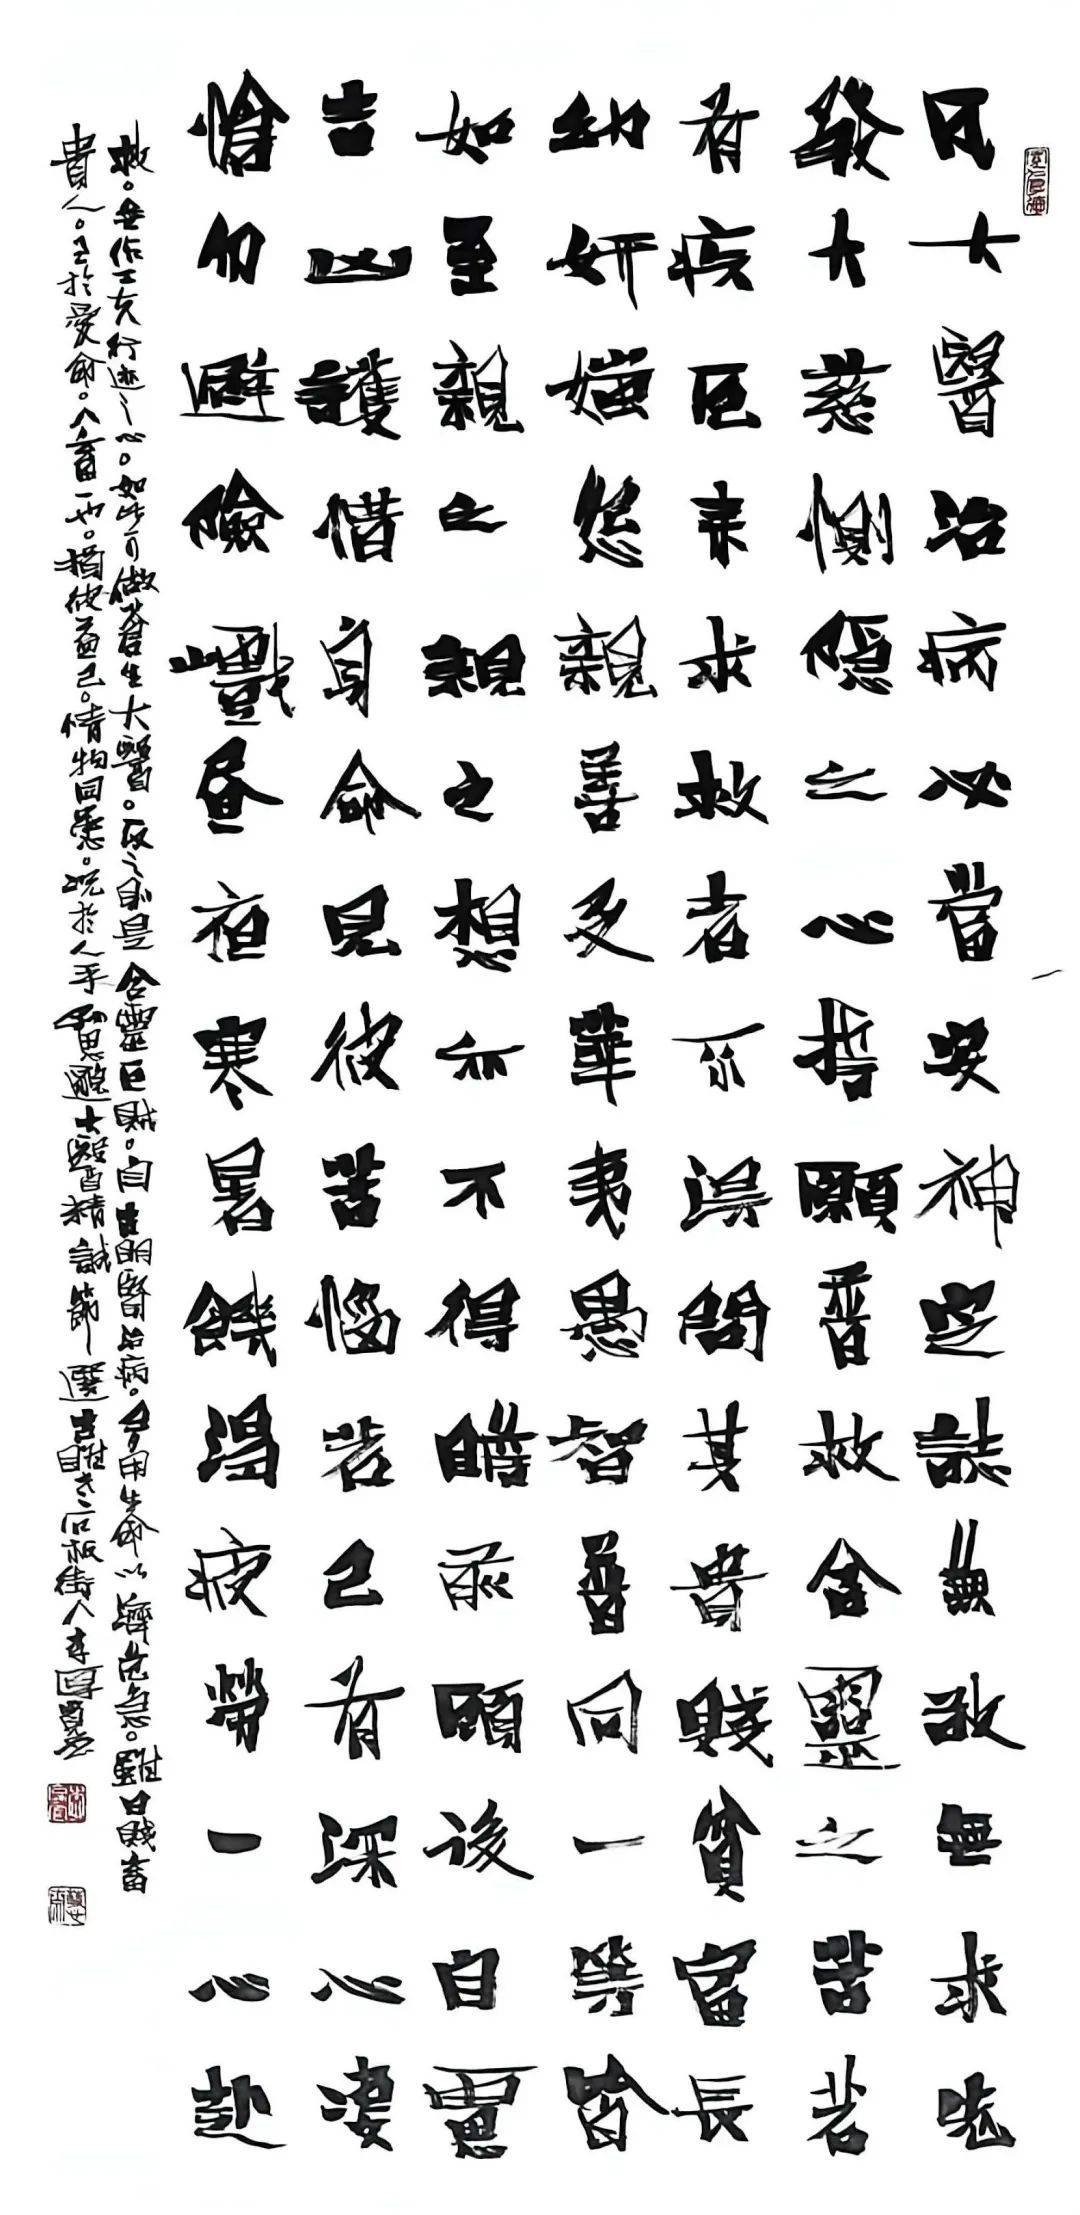 凡大醫治病必當安神定誌無欲無求先
發大慈惻隱之心誓願普救含靈之苦若
有疾厄來求救者不得問其貴賤貧富長
幼妍媸怨親善友華夷愚智普同一等皆
如至親之親之想亦不得瞻前顧後自慮
吉凶護惜身命見彼苦惱若己有深心凄
愴勿避險巇晝夜寒暑饑渴疲勞一心赴
救。無作工夫行迹之心。如此可做蒼生大醫。反之則是含靈巨賊。自古明醫治病。多用生命以濟危急。雖曰賤畜
貴人。至於愛命。人畜一也。損彼益己。情物同患。況於人乎 孫思邈大醫精誠節選 石板街人李